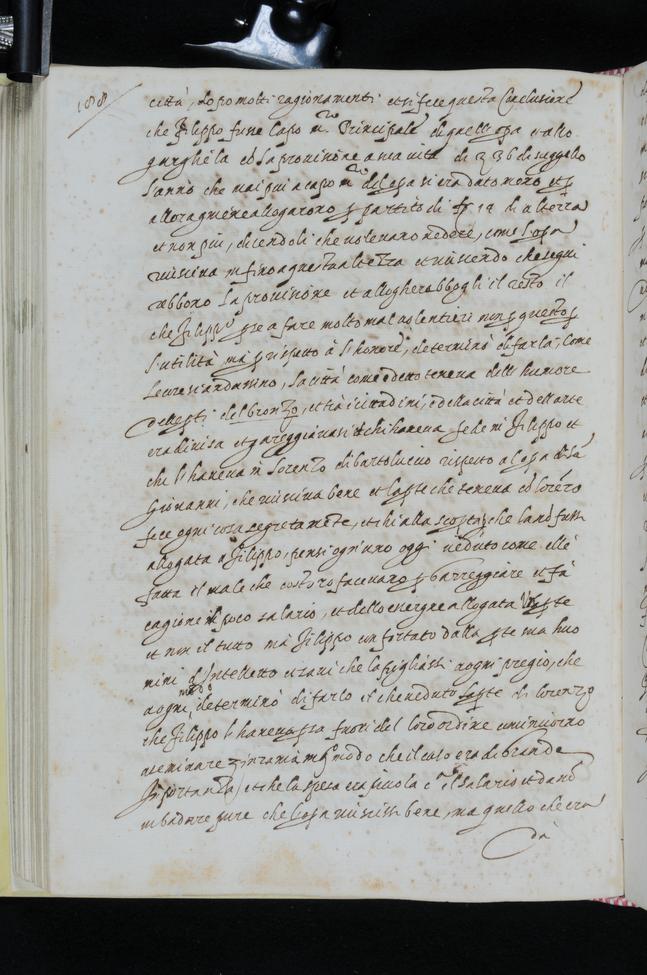 188
città, dopo molti ragionamenti et si fece questa Conclusione
che Filippo fusse Capo m.ro Principale di quell'opa et allo
gargliela cò la provisione a sua vita di
l'anno che mai più a capo m.ro dell'opa si era dato meno et p
allora gniene allogarono p partito di 12 di alteza
et non più, dicendoli che volevano vedere, come l'opa
riusciva in fino a questa alteza et riuscendo che segui
rebbono la provisione et allogherebbogli il resto il
che Filippo prese a fare molto mal volentieri non p questo p
l'utilità, ma p rispetto à l'honore, determinò di farla, Come
le cure si andassino, la città come è detto teneva dell' humore
delle sti del bronzo, et tra i cittadini, e della città et dell'arte
era divisa et pareggiavasi et chi haveva fede in Filippo et
chi l'haveva in Lorenzo di bartoluccio rispetto a l'opa di Sã
Giovanni, che riusciva bene et la pte che teneva cò lorézo
fece ogni cosa segretamète, et chi alla scopta, che la nò fussi
allogata a Filippo, pensi ogn'uno oggi veduto come ell'è
fatta il male che costoro facevano p bareggiare et fù
cagione il poco salario, et dello avergne allogata pte
et non il tutto ma Filippo confortato dalla pte ma huo
mini d'Intelletto et savi che la pigliassi a ogni pregio, che
a ogni modo, determinò di farlo il che veduto la pte di lorenzo
che Filippo l'haveva psa fuori del loro ordine cominciorno
a seminare zinzania in q.o modo che il caso era di Grande
Importanza, et che la spesa era picola c.a il salario et dandò
in badare pure che l'opa riuscissi bene, ma quello che era
da